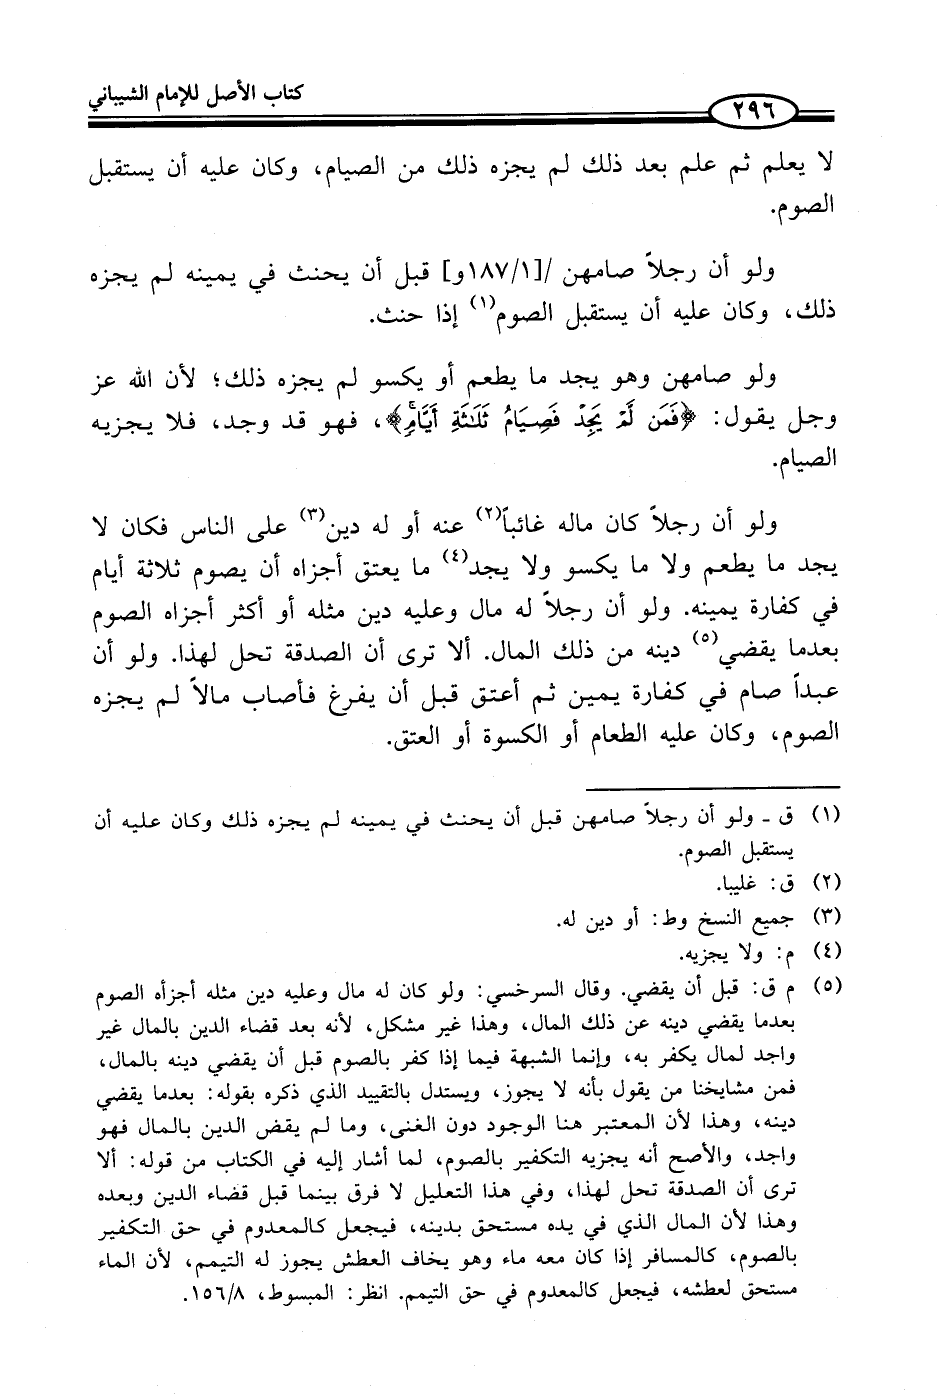 كتاب الأصل للإمام الشيباني
٢٩٦
لا يعلم ثم علم بعد ذلك لم يجزه ذلك من الصيام، وكان عليه أن يستقبل
الصوم.
ولو أن رجلاً صامهن /[١٨٧/١و] قبل أن يحنث في يمينه لم يجزه
ذلك، وكان عليه أن يستقبل الصوم(١) إذا حنث.
ولو صامهن وهو يجد ما يطعم أو يكسو لم يجزه ذلك؛ لأن الله عز
وجل يقول: ﴿فَمَن لَّمْ يَجِدْ فَصِيَامُ ثَلَاثَةِ أَيَّامٍ﴾، فهو قد وجد، فلا يجزيه
الصيام.
ولو أن رجلاً كان ماله غائباً(٢) عنه أو له دين(٣) على الناس فكان لا
يجد ما يطعم ولا ما يكسو ولا يجد(٤) ما يعتق أجزاه أن يصوم ثلاثة أيام
في كفارة يمينه. ولو أن رجلاً له مال وعليه دين مثله أو أكثر أجزاه الصوم
بعدما يقضي(٥) دينه من ذلك المال. ألا ترى أن الصدقة تحل لهذا. ولو أن
عبداً صام في كفارة يمين ثم أعتق قبل أن يفرغ فأصاب مالاً لم يجزه
الصوم، وكان عليه الطعام أو الكسوة أو العتق.
(١) ق ـ ولو أن رجلاً صامهن قبل أن يحنث في يمينه لم يجزه ذلك وكان عليه أن
يستقبل الصوم.
(٢) ق: غليبا.
(٣) جميع النسخ وط: أو دين له.
(٤) م: ولا يجزيه.
(٥) م ق: قبل أن يقضي. وقال السرخسي: ولو كان له مال وعليه دين مثله أجزأه الصوم
بعدما يقضي دينه عن ذلك المال، وهذا غير مشكل، لأنه بعد قضاء الدين بالمال غير
واجد لمال يكفر به، وإنما الشبهة فيما إذا كفر بالصوم قبل أن يقضي دينه بالمال،
فمن مشايخنا من يقول بأنه لا يجوز، ويستدل بالتقييد الذي ذكره بقوله: بعدما يقضي
دينه، وهذا لأن المعتبر هنا الوجود دون الغنى، وما لم يقض الدين بالمال فهو
واجد، والأصح أنه يجزيه التكفير بالصوم، لما أشار إليه في الكتاب من قوله: ألا
ترى أن الصدقة تحل لهذا، وفي هذا التعليل لا فرق بينما قبل قضاء الدين وبعده
وهذا لأن المال الذي في يده مستحق بدينه، فيجعل كالمعدوم في حق التكفير
بالصوم، كالمسافر إذا كان معه ماء وهو يخاف العطش يجوز له التيمم، لأن الماء
مستحق لعطشه، فيجعل كالمعدوم في حق التيمم. انظر: المبسوط، ١٥٦/٨.